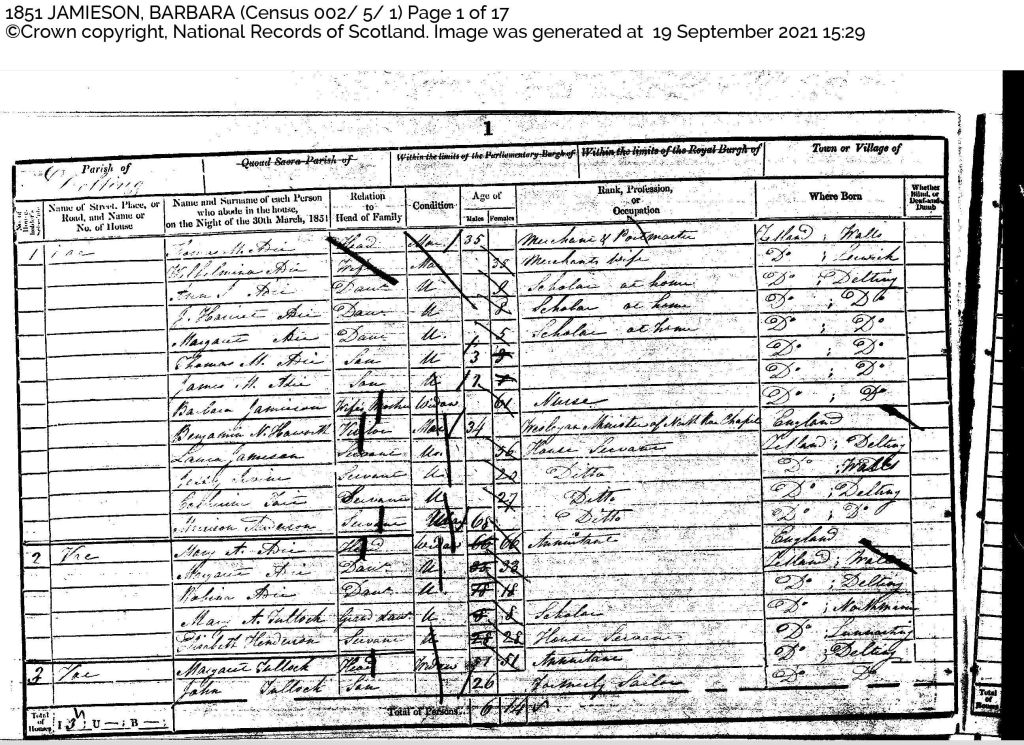 1851 JAMIESON, BARBARA (Census 002/ 5/ 1) Page 1 of 17
©Crown copyright, National Records of Scotland. Image was generated at 19 September 2021 15:29
1
Parish of Quoad Sacra Parish of Within the limits of the Parliamentary Burgh of Within the limits of the Royal Burgh of Town or Village of
Delting
Name of Street, Place, or Road, and Name or No. of House Name and Surname of each Person who abode in the house, on the Night of the 30th March, 1851 Relation to Head of Family Condition Age of Males Females Rank, Profession, or Occupation Where Born Whether Blind, or Deaf-and-Dumb
1 Voe Thomas M. Adie Head Mar 35 Merchant & Postmaster Zetland ; Walls
Wilhelmina Adie Wife Mar 35 Merchants wife Do ; Lerwick
Adie Daur U Scholar at home Do ; Delting
J. Harriet Adie Daur U 8 Scholar at home Do ; Do
Margaret Adie Daur U 5 Scholar at home Do ; Do
Thomas M. Adie Son U 3 Do ; Do
James H. Adie Son U Do ; Do
Barbara Jamieson Wife's Mother Widow 61 Nurse Do ; Do
Benjamin N. Haworth Visitor Mar 34 Wesleyan Minister of Chapel England
Laura Jameson Servant Un. 36 House Servant Zetland ; Delting
Servant U Ditto Do ; Walls
Catherine Servant U 27 Ditto Do ; Delting
Servant 68 Ditto Do ; Do
2 Voe Mary A. Adie Head Widow 66 Annuitant England
Margaret Adie Daur U. 33 Zetland ; Walls
Adie Daur U. 18 Do ; Delting
Mary A. Tullock Grand daur U 8 Scholar Do ; Northmavine
Elisabeth Henderson Servant U 28 House Servant Do ; Lunnasting
3 Voe Margaret Tullock Head Widow 51 Annuitant Do ; Delting
John Tullock Son 26 Formerly Sailor Do Do
Total of Houses I 3 U — B — Total of Persons... 6 14